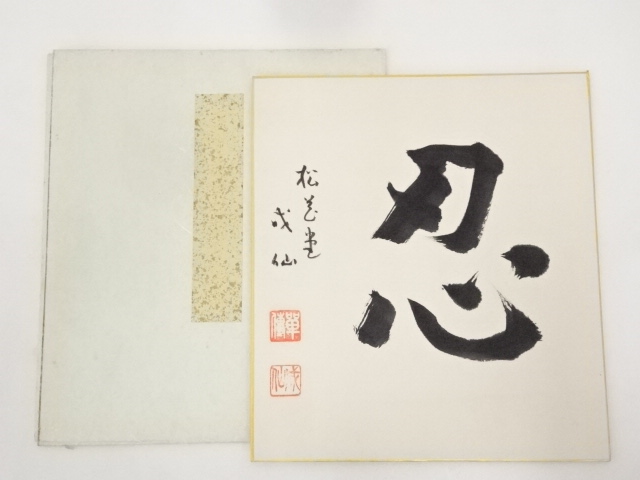 忍
松花堂
成仙